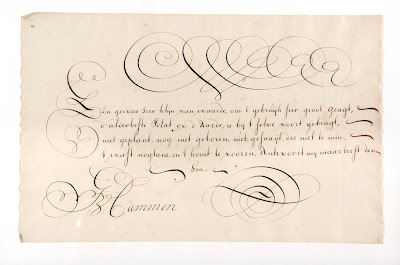 Een gewas seer klijn van waarde, om 't gebruijk seer groot geagt,
d'alderbeste Polat op d'Aarde, is bij 't selve voort gebragt,
niet geplant, nog niet geboren, niet gesaagt, des niet te min,
't wast nogtans, en 't komt te vooren, Antwoort mij maar heeft den
Sin
Hammen